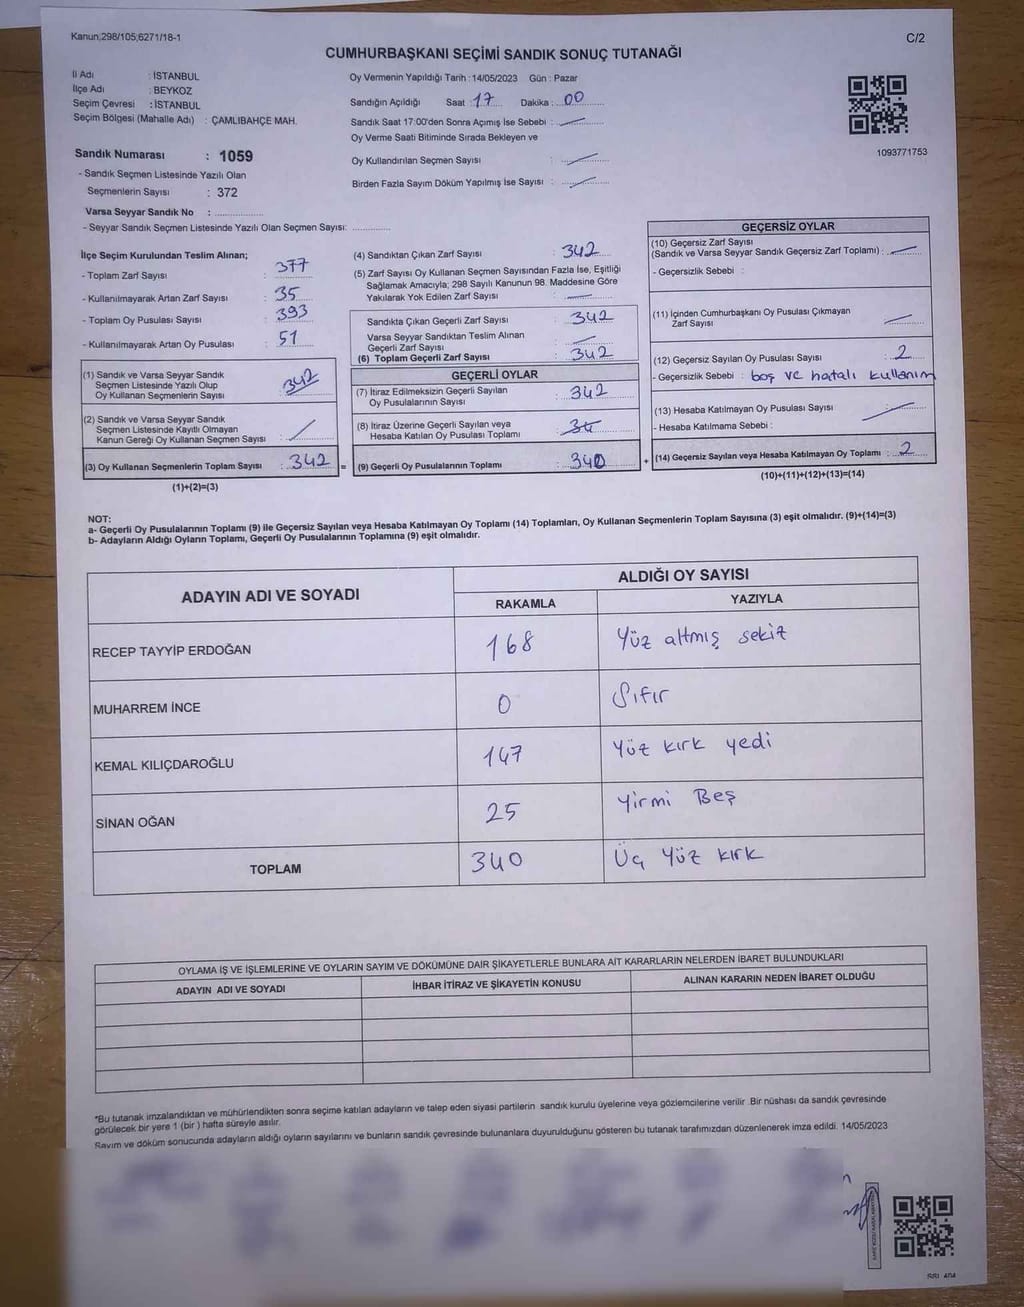 Kanun;298/105;6271/18-1
C/2
CUMHURBAŞKANI SEÇİMİ SANDIK SONUÇ TUTANAĞI
İl Adı : İSTANBUL
İlçe Adı : BEYKOZ
Seçim Çevresi : İSTANBUL
Seçim Bölgesi (Mahalle Adı) : ÇAMLIBAHÇE MAH.
Sandık Numarası : 1059
- Sandık Seçmen Listesinde Yazılı Olan
Seçmenlerin Sayısı : 372
Varsa Seyyar Sandık No :
- Seyyar Sandık Seçmen Listesinde Yazılı Olan Seçmen Sayısı:
Oy Vermenin Yapıldığı Tarih : 14/05/2023 Gün : Pazar
Sandığın Açıldığı Saat : 17 Dakika : 00
Sandık Saat 17:00'den Sonra Açımış İse Sebebi :
Oy Verme Saati Bitiminde Sırada Bekleyen ve
Oy Kullandırılan Seçmen Sayısı :
Birden Fazla Sayım Döküm Yapılmış İse Sayısı :
1093771753
İlçe Seçim Kurulundan Teslim Alınan;
- Toplam Zarf Sayısı : 377
- Kullanılmayarak Artan Zarf Sayısı : 35
- Toplam Oy Pusulası Sayısı : 393
- Kullanılmayarak Artan Oy Pusulası : 51
(1) Sandık ve Varsa Seyyar Sandık
Seçmen Listesinde Yazılı Olup
Oy Kullanan Seçmenlerin Sayısı : 342
(2) Sandık ve Varsa Seyyar Sandık
Seçmen Listesinde Kayıtlı Olmayan
Kanun Gereği Oy Kullanan Seçmen Sayısı :
(3) Oy Kullanan Seçmenlerin Toplam Sayısı : 342 =
(1)+(2)=(3)
(4) Sandıktan Çıkan Zarf Sayısı : 342
(5) Zarf Sayısı Oy Kullanan Seçmen Sayısından Fazla İse, Eşitliği
Sağlamak Amacıyla; 298 Sayılı Kanunun 98. Maddesine Göre
Yakılarak Yok Edilen Zarf Sayısı :
Sandıkta Çıkan Geçerli Zarf Sayısı : 342
Varsa Seyyar Sandıktan Teslim Alınan
Geçerli Zarf Sayısı :
(6) Toplam Geçerli Zarf Sayısı : 342
GEÇERLİ OYLAR
(7) İtiraz Edilmeksizin Geçerli Sayılan
Oy Pusulalarının Sayısı : 342
(8) İtiraz Üzerine Geçerli Sayılan veya
Hesaba Katılan Oy Pusulası Toplamı :
(9) Geçerli Oy Pusulalarının Toplamı : 340 +
GEÇERSİZ OYLAR
(10) Geçersiz Zarf Sayısı
(Sandık ve Varsa Seyyar Sandık Geçersiz Zarf Toplamı) :
- Geçersizlik Sebebi :
(11) İçinden Cumhurbaşkanı Oy Pusulası Çıkmayan
Zarf Sayısı :
(12) Geçersiz Sayılan Oy Pusulası Sayısı : 2
- Geçersizlik Sebebi : boş ve hatalı kullanım
(13) Hesaba Katılmayan Oy Pusulası Sayısı
- Hesaba Katılmama Sebebi :
(14) Geçersiz Sayılan veya Hesaba Katılmayan Oy Toplamı : 2
(10)+(11)+(12)+(13)=(14)
NOT:
a- Geçerli Oy Pusulalarının Toplamı (9) ile Geçersiz Sayılan veya Hesaba Katılmayan Oy Toplamı (14) Toplamları, Oy Kullanan Seçmenlerin Toplam Sayısına (3) eşit olmalıdır. (9)+(14)=(3)
b- Adayların Aldığı Oyların Toplamı, Geçerli Oy Pusulalarının Toplamına (9) eşit olmalıdır.
ADAYIN ADI VE SOYADI
ALDIĞI OY SAYISI
RAKAMLA YAZIYLA
RECEP TAYYİP ERDOĞAN 168 Yüz altmış sekiz
MUHARREM İNCE 0 Sıfır
KEMAL KILIÇDAROĞLU 147 Yüz kırk yedi
SİNAN OĞAN 25 Yirmi Beş
TOPLAM 340 Üç Yüz kırk
OYLAMA İŞ VE İŞLEMLERİNE VE OYLARIN SAYIM VE DÖKÜMÜNE DAİR ŞİKAYETLERLE BUNLARA AİT KARARLARIN NELERDEN İBARET BULUNDUKLARI
ADAYIN ADI VE SOYADI İHBAR İTİRAZ VE ŞİKAYETİN KONUSU ALINAN KARARIN NEDEN İBARET OLDUĞU
*Bu tutanak imzalandıktan ve mühürlendikten sonra seçime katılan adayların ve talep eden siyasi partilerin sandık kurulu üyelerine veya gözlemcilerine verilir .Bir nüshası da sandık çevresinde
görülecek bir yere 1 (bir ) hafta süreyle asılır.
Sayım ve döküm sonucunda adayların aldığı oyların sayılarını ve bunların sandık çevresinde bulunanlara duyurulduğunu gösteren bu tutanak tarafımızdan düzenlenerek imza edildi. 14/05/2023